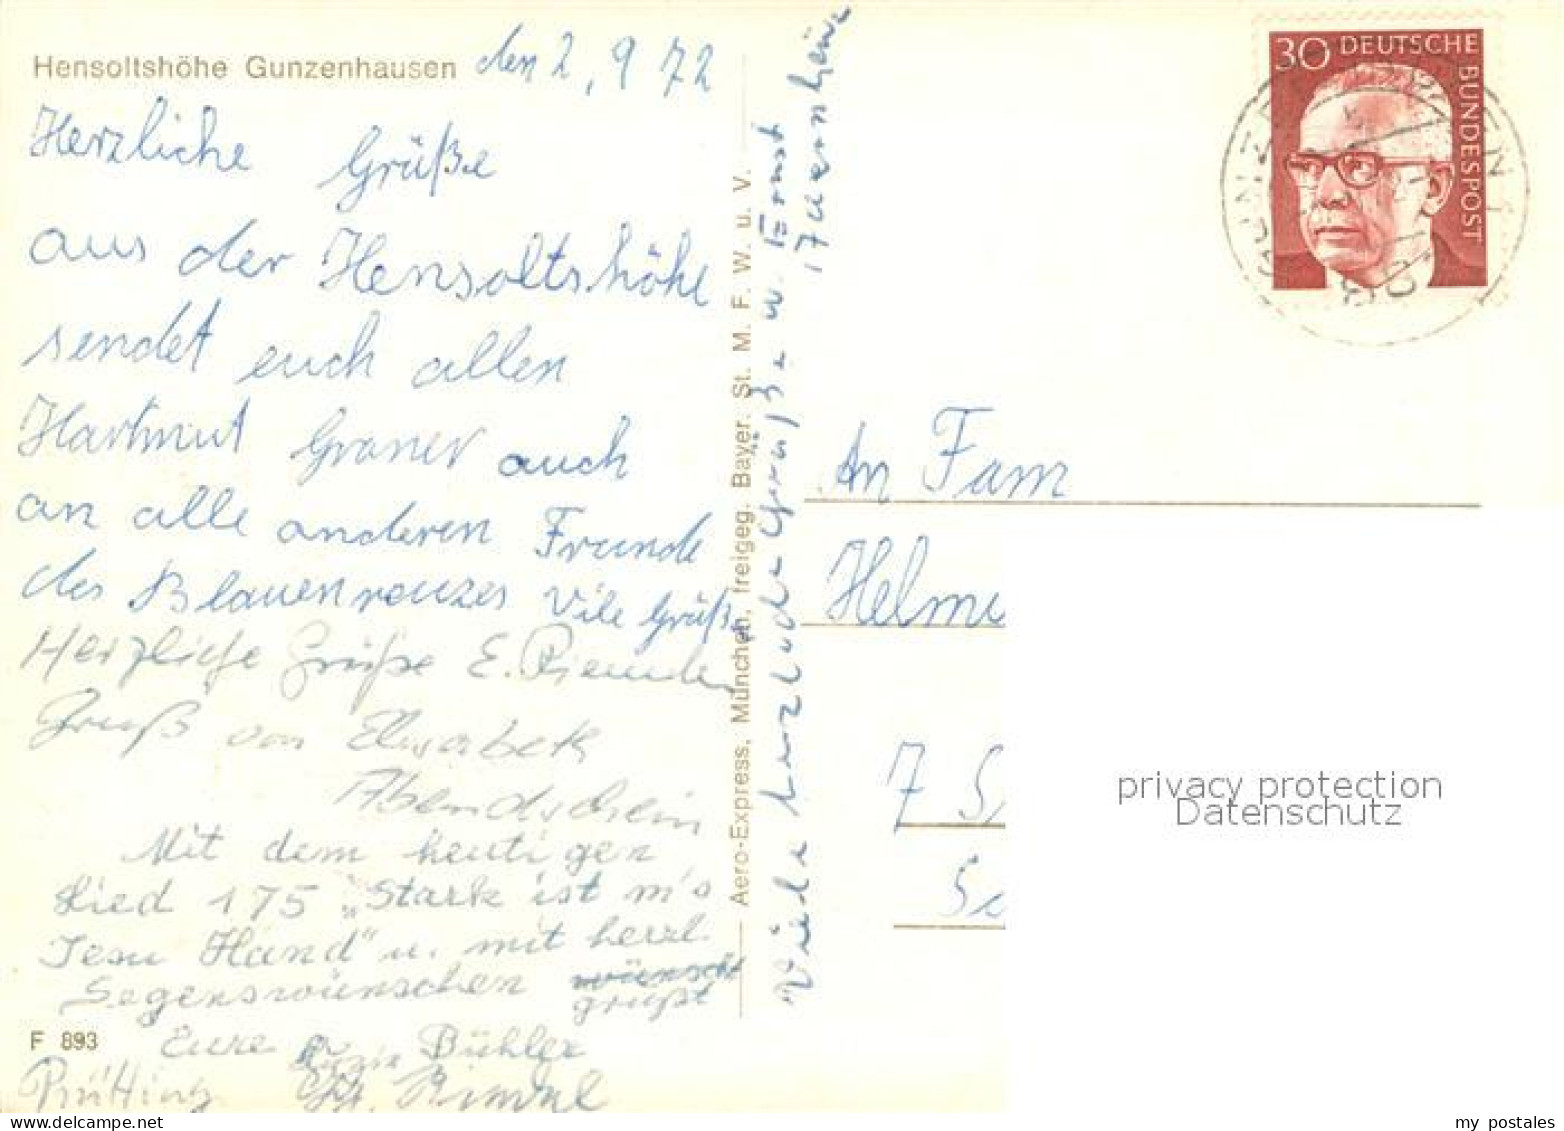 Hensoltshöhe Gunzenhausen den 2, 9 72
Herzliche Grüße
aus der Hensoltshöhe
sendet euch allen
Hartmut Graner auch
an alle anderen Freunde
des Blauenreuzes Vile Grüße
Herzliche Grüße E.
Gruß von Elisabeth
Abendschein
Mit dem heutigen
Lied 175 „Stark ist m's
Jesu Hand" u. mit herzl.
Segenswünschen wünscht
grüßt
Eure Bühler
F 893
Aero-Express, München, freigeg. Bayer. St. M. F. W. u. V.
Viele Grüße u. Ernst
30 DEUTSCHE
BUNDESPOST
An Fam
Helmu
7 S
Sc
privacy protection
Datenschutz
my postales